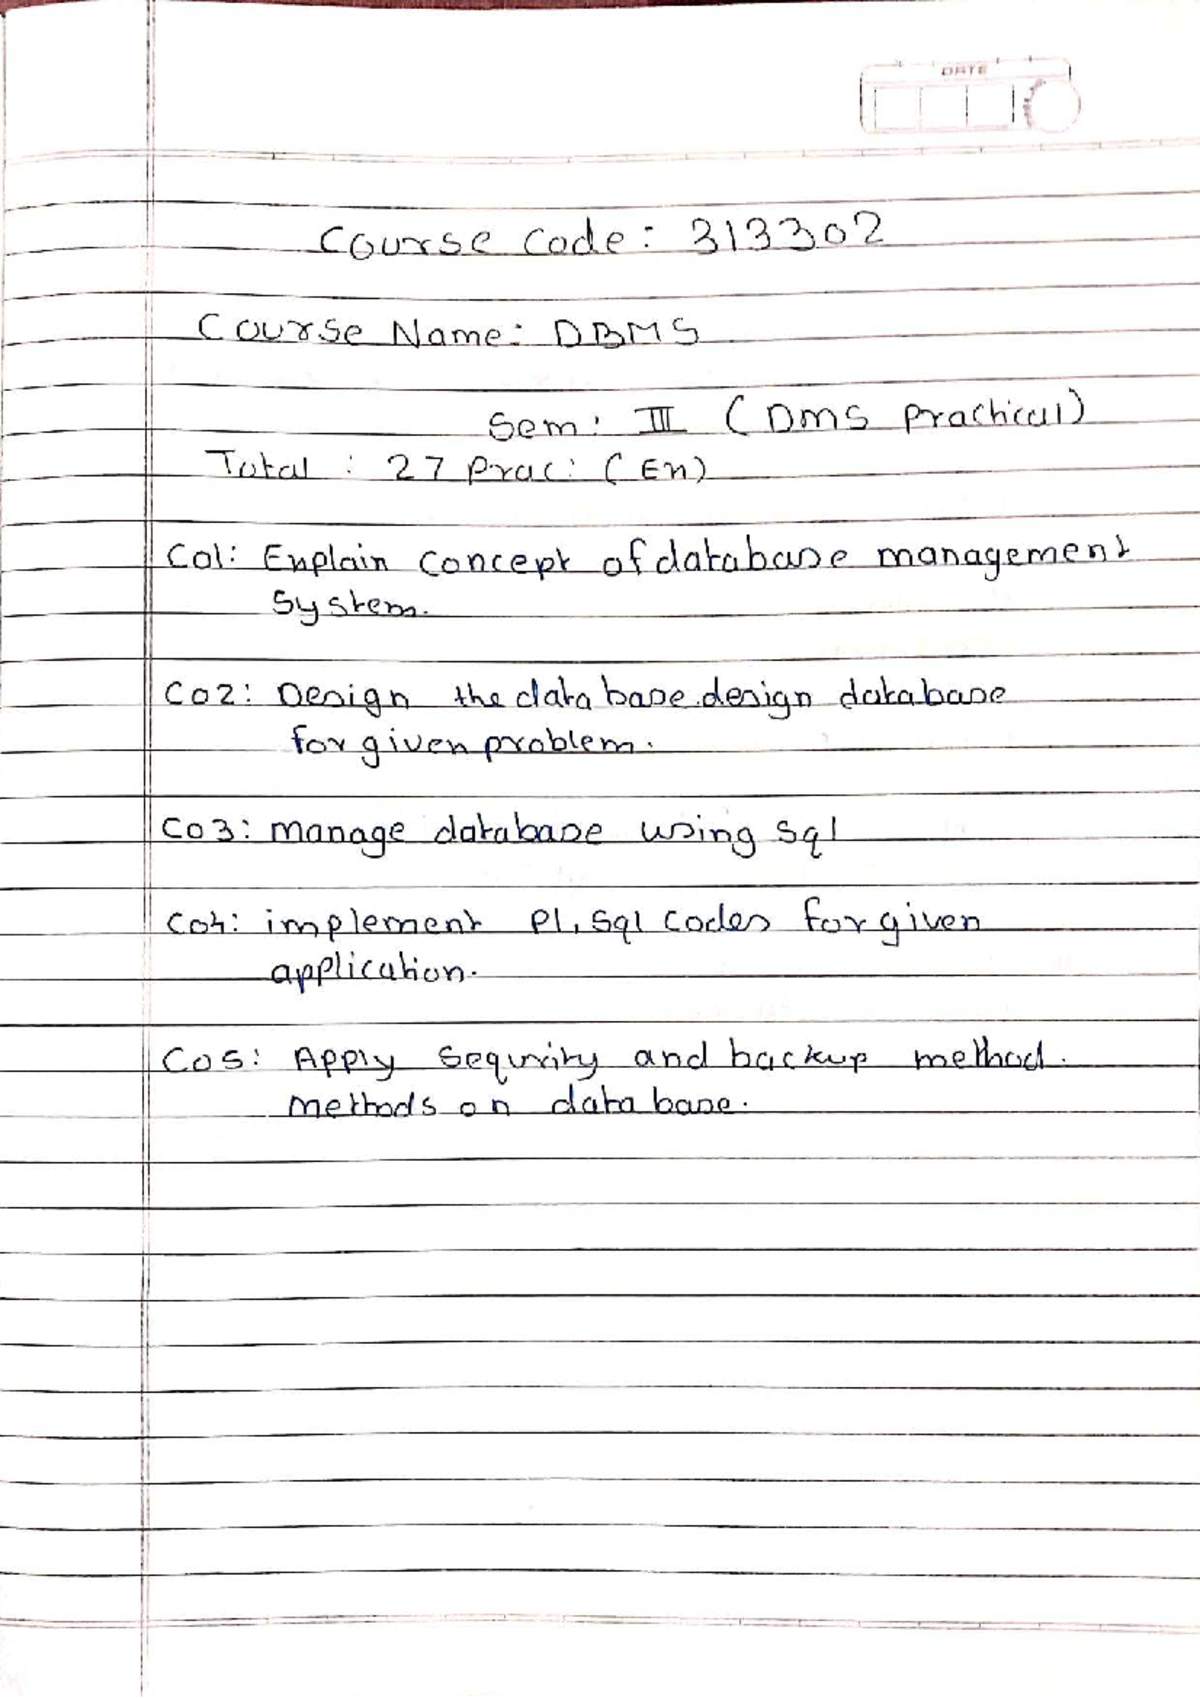 DATE
Course Code: 313302
Course Name: DBMS
Sem: III (DMS Practical)
Total : 27 Prac: (En)
CO1: Explain concept of database management
System.
CO2: Design the database.design database
for given problem.
CO3: manage database using sql
CO4: implement Pl, Sql codes for given
application.
CO5: Apply sequrity and backup method.
methods on database.